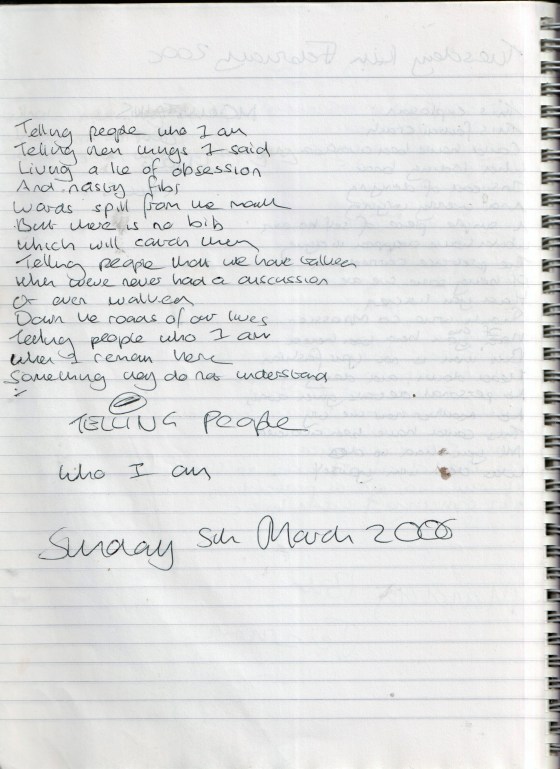 Telling people who I am
Telling them things I said
Living a lie of obsession
And nasty fibs
Words spill from the mouth
But there is no bib
which will catch them
Telling people that we have talked
When we've never had a discussion
Or even walked
Down the roads of our lives
Telling people who I am
When I remain here
Something they do not understand
TELLING People
who I am
Sunday 5th March 2006